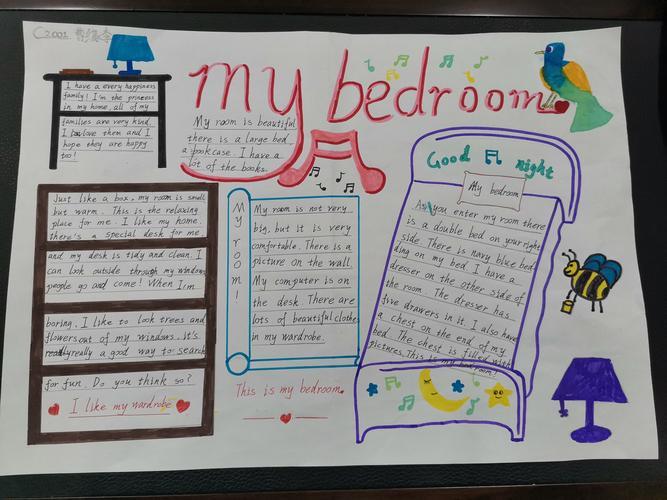 C2001
my bedroom
I have a every happiness
family! I'm the princess
in my home, all of my
families are very kind.
I love them and I
hope they are happy
too!
My room is beautiful
there is a large bed
a bookcase. I have a
lot of the books.
Just like a box, my room is small
but warm. This is the relaxing
place for me. I like my home.
there's a special desk for me.
and my desk is tidy and clean. I
can look outside through my windows
people go and come! When I'm
boring, I like to look trees and
flowers out of my windows. it's
really a good way to search
for fun. Do you think so?
I like my wardrobe
My room!
My room is not very
big, but it is very
comfortable. There is a
picture on the wall.
My computer is on
the desk There are
lots of beautiful clothes
in my wardrobe.
This is my bedroom.
Good night
My bedroom
As you enter my room there
is a double bed on your right
side. There is navy blue bed
ding on my bed. I have a
dresser on the other side of
the room. The dresser has
five drawers in it. I also have
a chest on the end of my
bed. The chest is filled with
pictures. This is my bedroom!